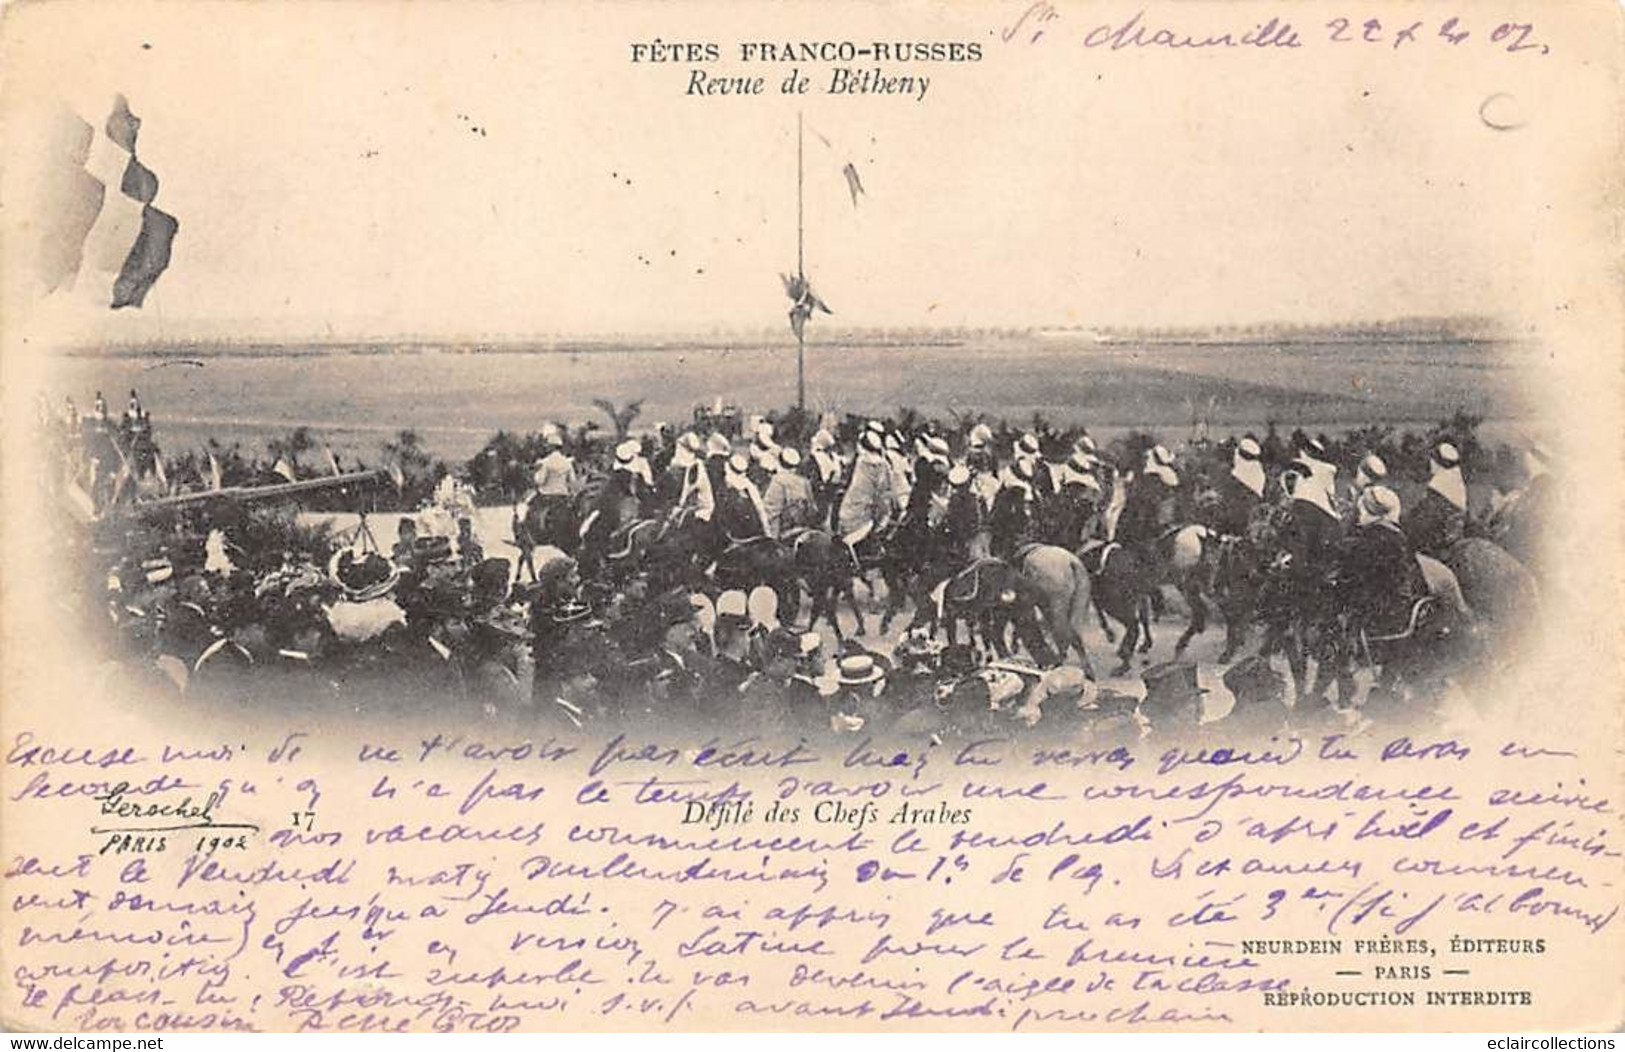 St Chamville 22 x 02.
FÊTES FRANCO-RUSSES
Revue de Bétheny
Excuse moi de ne t'avoir pas écrit mais tu verras quand tu seras en
seconde qu'on n'a pas le temps d'avoir une correspondance suivie.
Gerschel
PARIS 1902
17
Défilé des Chefs Arabes
nos vacances commencent le vendredi d'après Noël et finis-
sent le Vendredi matin de l'an. Les examens commen-
cent demain jusqu'à Jeudi. J'ai appris que tu as été 3e (si j'ai bonne
mémoire) en et 1er en version latine pour la première
composition. C'est superbe. tu vas devenir l'aigle de ta classe
te plais-tu, Réponds-moi s.v.p. avant Jeudi prochain
Ton cousin René Gros
NEURDEIN FRÈRES, ÉDITEURS
— PARIS —
REPRODUCTION INTERDITE
www.delcampe.net
eclaircollections